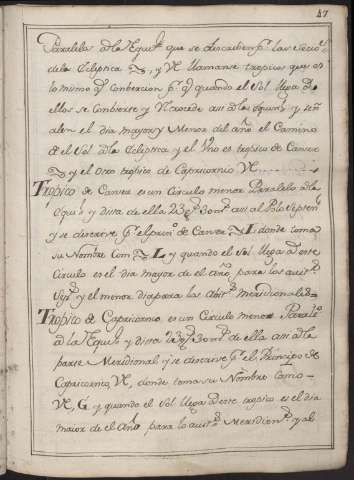 47
Paralelos a la Equi.l que se describen p.r las Secio.s
de la Ecliptica ♋, y ♑ llamanse tropicos que es
lo mismo q.e Conbercion p.r q.e quando el Sol llega a
ellos se Conbierte y retrocede asi a la Equin.l y señ
alan el dia mayor y Menor del año el Camino
de el Sol a la Ecliptica y el Uno es tropico de Cancer
♋ y el otro tropico de Capricornio ♑
Tropico de Cancer es un Circulo menor Paralelo a la
Equi.l y dista de ella 23 g.s 30 m.s asi al Polo Septen.l
y se descrive p.r el prin.o de Cancer ♋ L donde toma
su Nombre Com ♋ L y quando el Sol llega a este
Circulo es el dia mayor de el año, para los avit.s
Sep.s y el menor dia para los abit.s Meridionales
Tropico de Capricornio es un Circulo menor Paralo
a la Equi.l y dista 23 g.s 30 m.s de ella asi a la
parte Meridional y se descrive p.r el Principio de
Capricornio ♑, donde toma su Nombre Como
♑, G y quando el Sol llega a este tropico es el dia
maior de el Año para lo avit.s Meridion.s y al